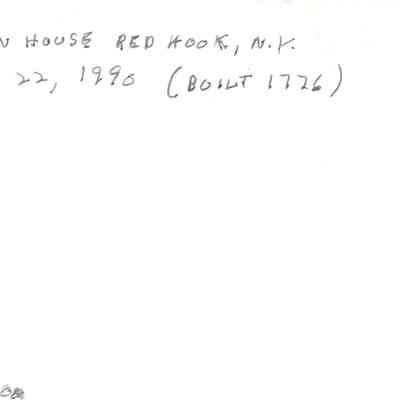 N HOUSE RED HOOK, N.Y.
22, 1990 (BUILT 1776)